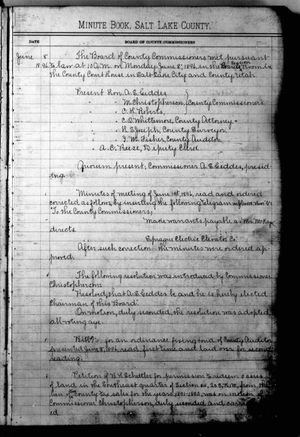 MINUTE BOOK, SALT LAKE COUNTY.
DATE
BOARD OF COUNTY COMMISSIONERS
June 8 The Board of County Commissioners met pursuant
to law at 10 A.M. on Monday June 8, 1896, in the room in
the County Court House in Salt Lake City and County, Utah.
Present Hon. A. E. Geddes
" M. Christopherson, County Commissioners
" C. H. Roberts,
" C. D. Whittemore, County Attorney
" H. S. Joseph, County Surveyor
" I. M. Fisher, County Auditor
" A. C. Reese, Deputy Clerk
Quorum present, Commissioner A. E. Geddes, presid-
ing.
Minutes of meeting of June 1st 1896, read and ordered
corrected as follows by inserting the following telegram
To the County Commissioners;
Make warrants payable as
directs.
Sprague Electric Elevator Co
After such correction the minutes were ordered ap-
proved.
The following resolution was introduced by Commissioner
Christopherson:
Resolved that A. E. Geddes be and he is hereby elected
Chairman of this Board.
On motion, duly seconded, the resolution was adopted,
all voting aye.
for an ordinance fixing bond of County Auditor
presented June 8, 1896, read first time and laid over for second
reading.
Petition of H. H. Schettler for permission to redeem
of land in the Southeast quarter of Section
of County tax sales for the years was on motion of
Commissioner Christopherson, duly seconded and carri-
ed